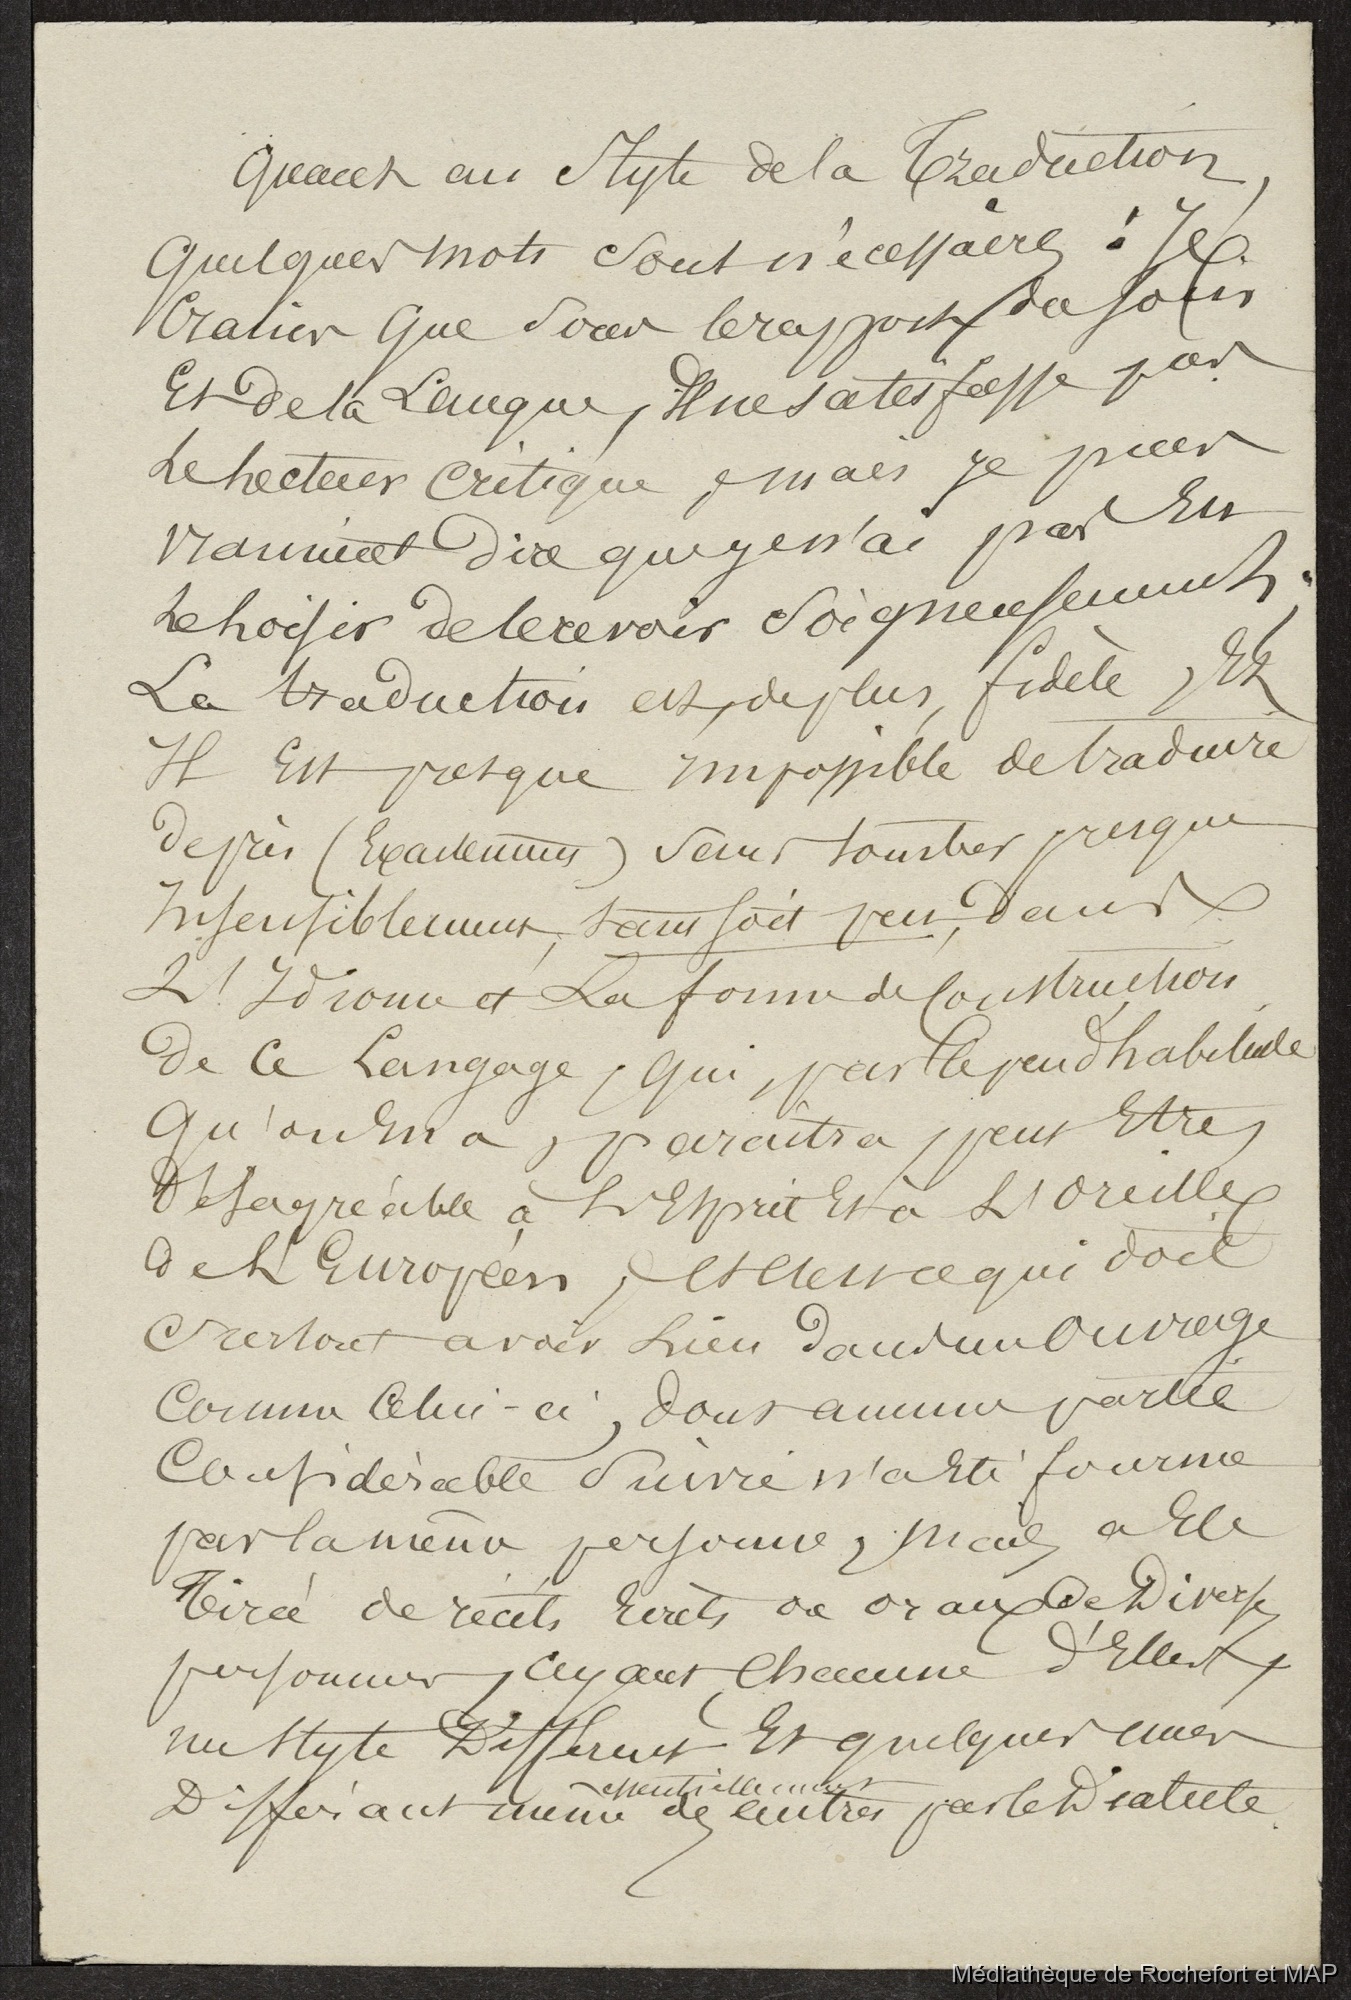 Quant au Style de la Traduction,
Quelques mots sont nécessaires : Je
Crains Que sous le rapport du soin
Et de la Langue, Il ne satisfasse pas
Le Lecteur Critique, mais je puis
vraiment Dire que je n'ai pas Eu
Le loisir De le revoir Soigneusement.
La traduction est, de plus, fidèle, Et
Il Est presque impossible de traduire
de près (Exactement) sans tomber presque
Insensiblement, tant soit peu, dans
L'Idiome et La forme de Construction
De Ce Langage, Qui, par le peu d'habitude
Qu'on En a, paraîtra, peut Etre,
Désagréable à L'Esprit Et à L'Oreille
De L'Européen, et c'est ce qui doit
Surtout avoir Lieu Dans un Ouvrage
Comme Celui-ci, Dont aucune partie
Considérable Suivie n'a Eté fournie
par la même personne, Mais a Eté
Tirée de récits Ecrits ou oraux De Diverses
personnes, ayant Chacune d'Elles,
un style Différent Et quelques unes
essentiellement
Différant même des autres par le Dialecte
Médiathèque de Rochefort et MAP